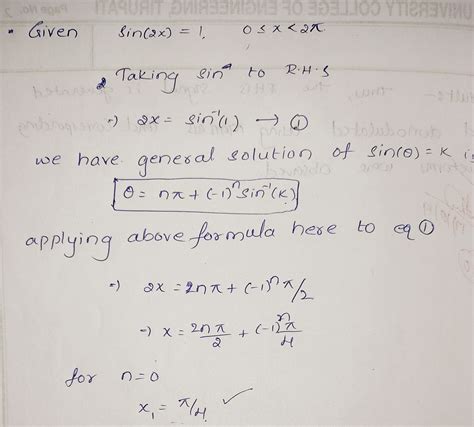 UNIVERSITY COLLEGE OF ENGINEERING TIRUPATI
Page No. 2
• Given sin(2x) = 1, 0 ≤ x < 2π.
Taking sin⁻¹ to R.H.S
⇒) 2x = sin⁻¹(1) → ①
we have general solution of sin(θ) = K is
θ = nπ + (-1)ⁿ sin⁻¹(K)
applying above formula here to eq ①
⇒) 2x = 2nπ + (-1)ⁿ π/2
⇒) x = 2nπ/2 + (-1)ⁿ π/4
for n=0
x₁ = π/4 ✓